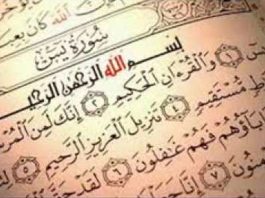 الله كان بع
سورة يس
بسم الله الرحمن الرحيم
يس ۝١ والقرءان الحكيم ۝٢ إنك لمن المر
ط مستقيم ۝٤ تنزيل العزيز الرحيم ۝٥
ءاباؤهم فهم غافلون ۝٦ لقد حق
منون ۝٧ إنا جعلنا